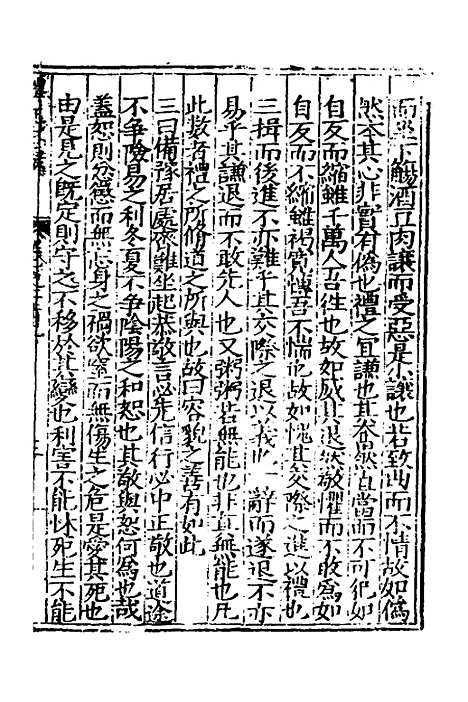 而坐下觴酒豆肉讓而受惡是小讓也若致曲而不情故如偽
然本其心非實有偽也禮之宜謙也其容貌宜當而不可犯如
自反而縮雖千萬人吾往也故如威其退然敬懼而不敢為如
自反而不縮雖褐寬博吾不惴也故如愧其交際之進以禮也
三揖而後進不亦難乎其交際之退以義也一辭而遂退不亦
易乎其謙退而不敢先人也又粥粥若無能也非真無能也凡
此數者禮之所脩道之所與也故曰容貌之善有如此
三曰備豫居處齊難坐起恭敬言必先信行必中正敬也道途
不爭險易之利冬夏不爭陰陽之和恕也其敬與恕何為也哉
蓋恕則忿懲而無忘身之禍欲窒而無傷生之危是愛其死也
由是見之既定則守之不移於其變也利害不能怵死生不能